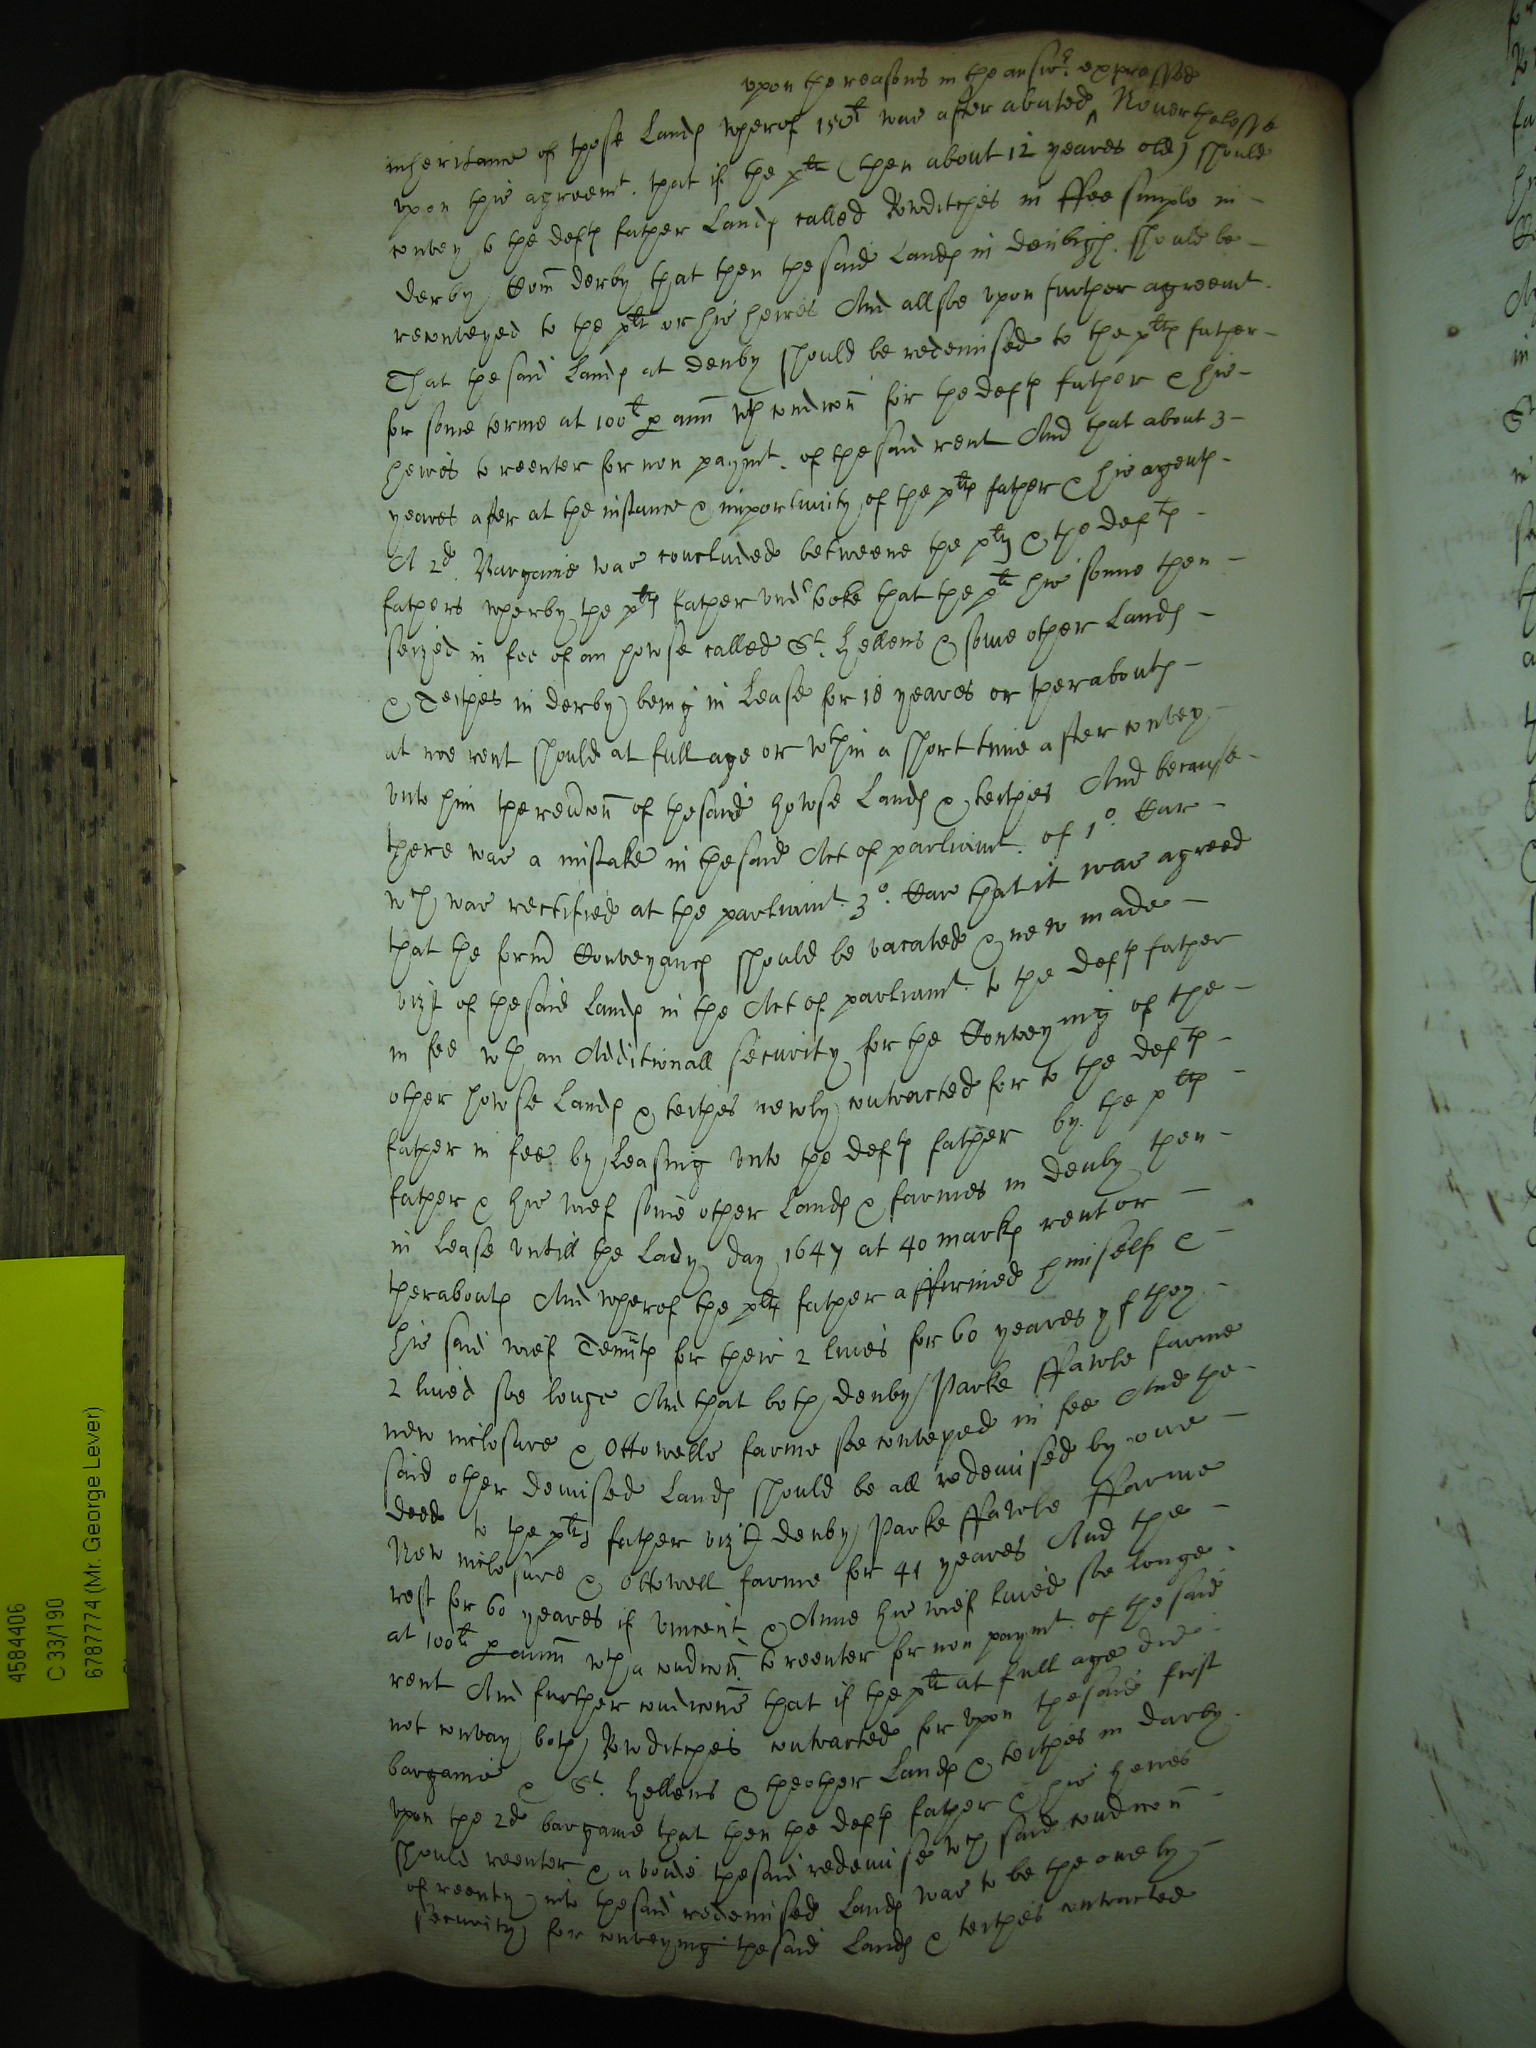 upon the reasons in the answ:r expressed
inheritance of those Lands wherof 150li was after abated ^ Neverthelesse
upon this agreemt. that if the plt (then about 12 yeares old) should
convey to the defts father Lands called Rowditches in ffee simple in -
derby Com derby that then the said Lands in denbigh should be -
reconveyed to the plt or his heires And allsoe upon further agreemt.
That the said Lands at denby should be redemised to the plts father -
for some terme at 100li p ann wth condicon for the defts father & his -
heires to reenter for non paymt. of the said rent And that about 3 -
yeares after at the instance & importunity of the plts father & his agents -
A 2d. Bargaine was concluded betweene the plts & the defts -
fathers wherby the plts father undrtooke that the plt his sonne then -
seized in fee of an howse called St. Hellens & some other Lands -
& Teithes in derby being in Lease for 18 yeares or therabouts -
at noe rent should at full age or wthin a short time after convey -
unto him the revercon of the said howse Lands & teithes And because -
there was a mistake in the said Act of parliamt. of 1o. Car -
wch was rectified at the parliamt. 3o. Car that it was agreed
that the formr Conveyancs should be vacated & new made -
vizt of the said Lands in the Act of parliamt. to the defts father
in fee wth an Additionall security for the Conveying of the -
other howse Lands & teithes newly contracted for to the defts -
father in fee by Leasing unto the defts father by the plts -
father & his wief some other Lands & farmes in denby then -
in Lease untill the Lady day 1647 at 40 marks rent or -
therabouts And wherof the plts father affirmed himself & -
his said wief Tennts for their 2 lives for 60 yeares yf they -
2 lived soe longe And that both denby Parke ffawle farme
new inclosure & Ottowells farme soe conveyed in fee And the -
said other demised Lands should be all redemised by one -
deed to the plts father vizt denby Parke ffawle ffarme
New inclosure & Ottowell farme for 41 yeares And the -
rest for 60 yeares if Vincent & Anne his wief lived soe longe .
at 100li p ann wth a condicon to reenter for non paymt. of the said
rent And further condicons that if the plt at full age did -
not convay both Rowditches contracted for upon the said first
bargaine & St. Hellens & the other Lands & teithes in darby.
upon the 2d bargaine that then the defts father & his heires
should reenter & avoide the said redemise wch said condicon -
of reentry into the said redemised Lands was to be the onely -
security for conveying the said Lands & teithes contracted
4584406
C 33/190
6787774 (Mr. George Lever)